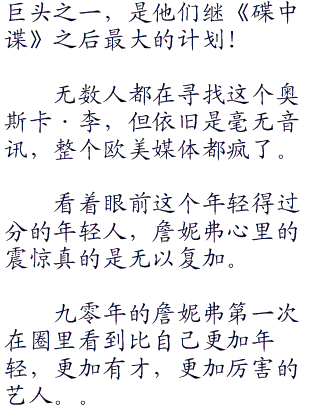 巨头之一，是他们继《碟中
谍》之后最大的计划！
无数人都在寻找这个奥
斯卡·李，但依旧是毫无音
讯，整个欧美媒体都疯了。
看着眼前这个年轻得过
分的年轻人，詹妮弗心里的
震惊真的是无以复加。
九零年的詹妮弗第一次
在圈里看到比自己更加年
轻，更加有才，更加厉害的
艺人。。